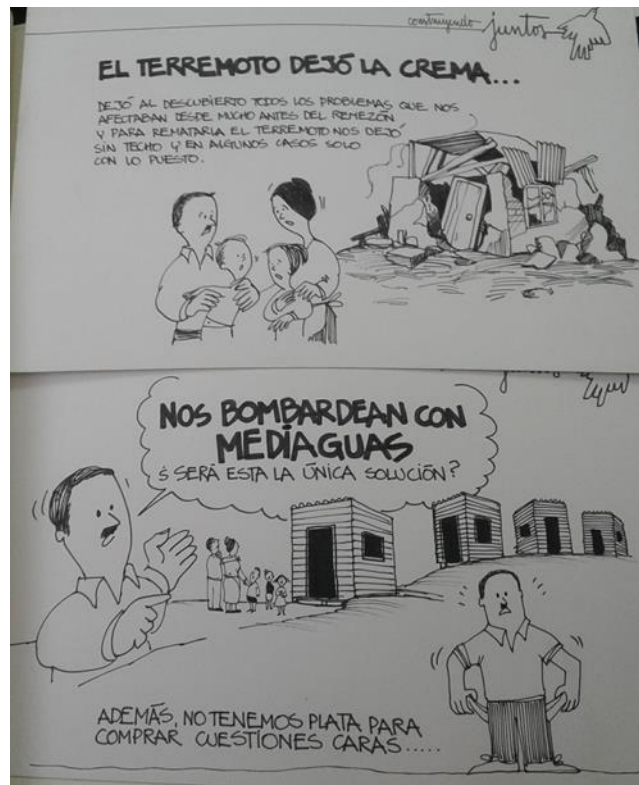 construyendo juntos
EL TERREMOTO DEJÓ LA CREMA...
DEJÓ AL DESCUBIERTO TODOS LOS PROBLEMAS QUE NOS
AFECTABAN DESDE MUCHO ANTES DEL REMEZÓN
Y PARA REMATARLA EL TERREMOTO NOS DEJÓ
SIN TECHO Y EN ALGUNOS CASOS SOLO
CON LO PUESTO.
NOS BOMBARDEAN CON
MEDIAGUAS
¿SERÁ ESTA LA ÚNICA SOLUCIÓN?
ADEMÁS, NO TENEMOS PLATA PARA
COMPRAR CUESTIONES CARAS.....